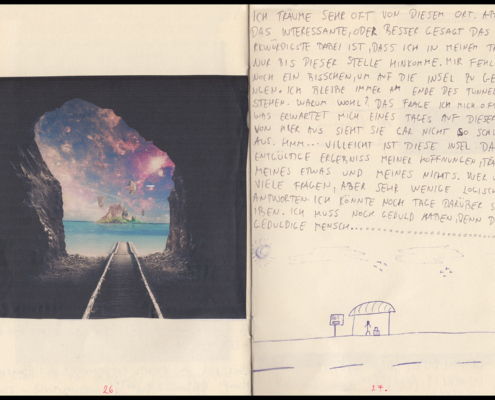 ICH TRÄUME SEHR OFT VON DIESEM ORT.
DAS INTERESSANTE, ODER BESSER GESAGT DAS
RKWÜRDIGSTE DABEI IST, DASS ICH IN MEINEN
NUR BIS DIESER STELLE HINKOMME. MIR FEHL
NOCH EIN BISSCHEN, UM AUF DIE INSEL ZU GE
GEN. ICH BLEIBE IMMER AM ENDE DES TUNNEL
STEHEN. WARUM WOHL? DAS FRAGE ICH MICH OF
WAS ERWARTET MICH EINES TAGES AUF DIESER
VON HIER AUS SIEHT SIE GAR NICHT SO SCHL
AUS. HMM... VILLEICHT IST DIESE INSEL DA
ENTGÜLTIGE ERGEBNISS MEINER HOFFNUNGEN, TRÄU
MEINES ETWAS UND MEINES NICHTS.
VIELE FRAGEN, ABER SEHR WENIGE LOGISC
ANTWORTEN. ICH KÖNNTE NOCH TAGE DARÜBER S
IBEN. ICH MUSS NOCH GEDULD HABEN, DENN
GEDULDIGE MENSCH...
26.
27.